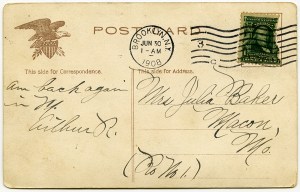 POST CARD.
BROOKLYN, N.Y.
JUN 30
1-AM
1908
3
This side for Correspondence.
This side is for the Address.
Am back again
in NY.
Wilbur R.
Mrs Julia Baker
Macon,
Mo.
(Ro No 1.)